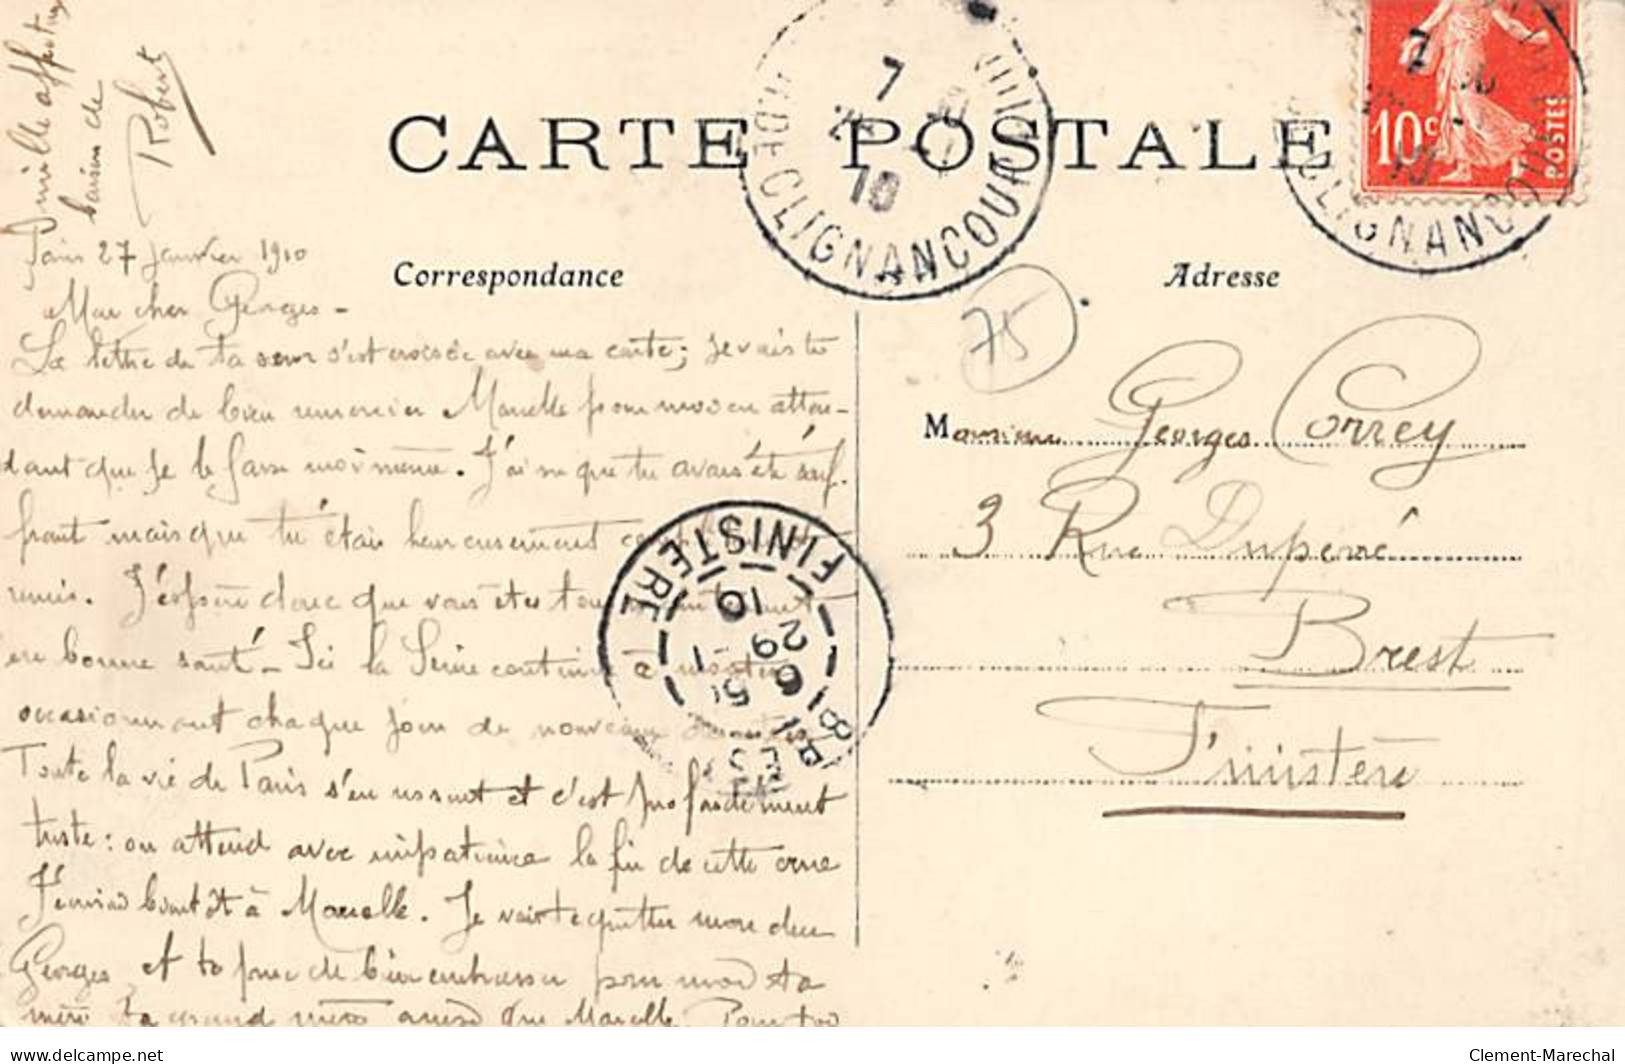 mille affectu
baiser de
Robert
CARTE POSTALE
Correspondance
Adresse
10c POSTES
7
10
CLIGNANCOURT
75
Paris 27 Janvier 1910
Mon cher Georges -
La lettre de ta sœur s'est croisée avec ma carte; je vais te
demander de bien remercier Marcelle pour moi en atten-
dant que je le fasse moi même. J'ai su que tu avais été souf-
frant mais que tu étais heureusement
remis. J'espère donc que vous êtes tous maintenant
en bonne santé - Ici la Seine continue à monter
occasionnant chaque jour de nouveaux
Toute la vie de Paris s'en ressent et c'est profondément
triste: on attend avec impatience la fin de cette crue
J'écrirai bientôt à Marcelle. Je vais te quitter mon cher
Georges et te prie de bien embrasser pour moi ta
mère ta grand mère ainsi que Marcelle. Pour toi
Monsieur Georges Correy
3 Rue Duperré
Brest
Finistère
BREST
FINISTERE
6 50
29 1
10
delcampe.net
Clement-Marechal